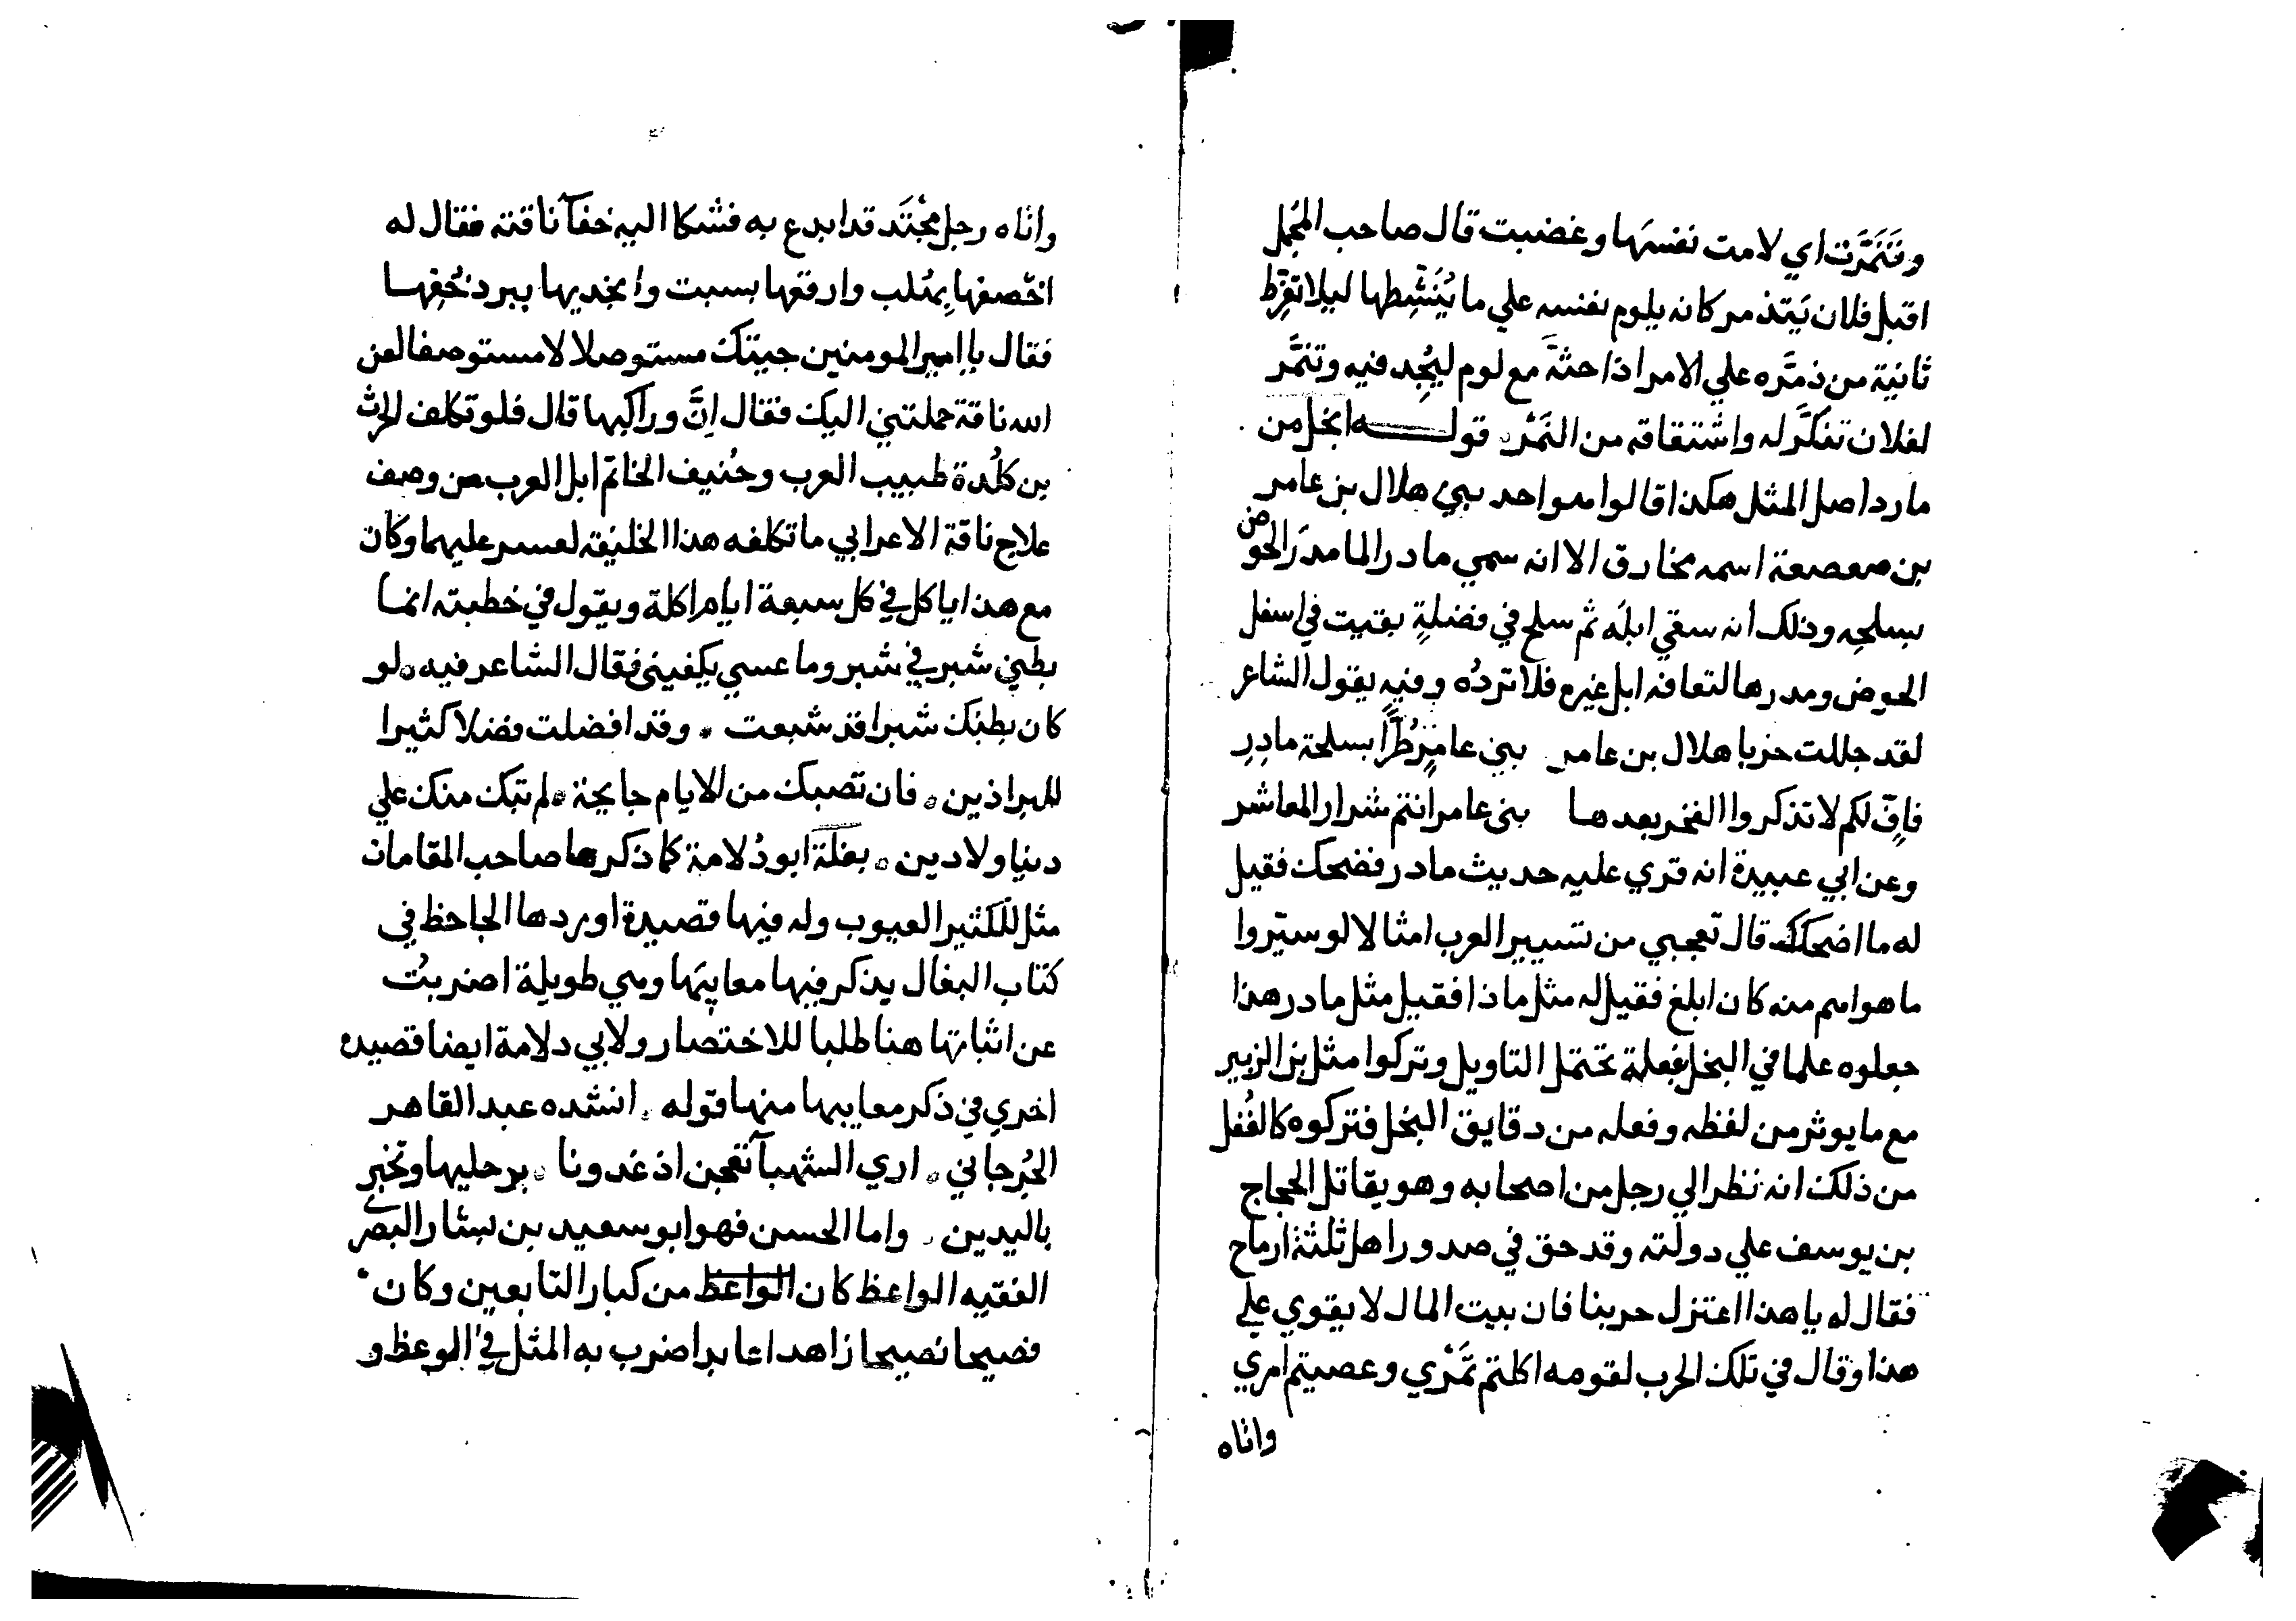 وتَنَمَّرت اي لامت نفسَها وغضبت قال صاحب المُجمل
اقبل فلان يَتذمر كانه يلوم نفسه علي ما يُنَشِطها ليلا تفرط
ثانية من ذمَّره علي الامر اذا حثَّه مع لوم ليُجِد فيه وتنمَّر
لفلان تنكَّر له واشتقاقه من النَمْر قولـــه ابخل من
مارد اصل المثل هكذا قالوا هو واحد بني هلال بن عامر
بن صعصعة اسمه مخارق الا انه سمي مادر الما مدَر الحوض
بسلحِه وذلك انه سقي ابلَه ثم سلح في فضلةٍ بقيت في اسفل
الحوض ومدرها لتعافه ابل غيره فلا تردُه وفيه يقول الشاعر
لقد جللت خزيا هلال بن عامر بني عامرٍ طُرًّا بسلحة مادِرِ
فافٍّ لكم لا تذكروا الفخر بعدها بني عامر انتم شرار المعاشر
وعن ابي عبيدة انه قري عليه حديث مادر فضحك فقيل
له ما اضحكك قال تعجبي من تسيير العرب امثالا لو سيّروا
ما هو اهم منه كان ابلغ فقيل له مثل ماذا فقيل مثل مادر هذا
جعلوه علما في البخل بفعلة تحتمل التاويل وتركوا مثل بن الزبير
مع ما يوثر من لفظه وفعله من دقايق البخل فتركوه كالغُفل
من ذلك انه نظر الي رجل من اصحابه وهو يقاتل الحجاج
بن يوسف علي دولته وقد دق في صدور اهل ثلثة ارماح
فقال له يا هذا اعتزل حربنا فان بيت المال لا يقوي علي
هذا وقال في تلك الحرب لقومه اكلتم تَمْري وعصيتم امري
واتاه
واتاه رجل مجْتَد قد ابدع به فشكا اليه خفآ ناقته فقال له
اخصفها بهُلب وارقعها بسبت وانجد بها يبرد خُفِها
فقال يا امير المومنين جيتك مستوصلا لا مستوصفا لعن
الله ناقة حملتني اليك فقال اِنَّ وراكبها قال فلو تكلف الحرث
بن كلُدة طبيب العرب وحُنيف الخاتم ابل العرب من وصف
علاج ناقة الاعرابي ما تكلفه هذا الخليفة لعسر عليهما وكان
مع هذا ياكل في كل سبعة ايام اكلة ويقول في خطبته انما
بطني شبر في شبر وما عسي يكفيني فقال الشاعر فيه لو
كان بطنك شبرا قد شبعت . وقد افضلت فضلا كثيرا
للبراذين . فان تصبك من الايام جايحة . لم تبك منك علي
دنيا ولا دين . بغلة ابو دُلامة كما ذكرها صاحب المقامات
مثل للكثير العيوب وله فيها قصيدة اوردها الجاحظ في
كتاب البغال يذكر فيها معايبَها وهي طويلة اضربتُ
عن اثباتها هنا طلبا للاختصار ولابي دلامة ايضا قصيده
اخري في ذكر معايبها منها قوله . انشده عبد القاهر
الجُرجاني . اري الشهبآ تعجن اذ غدونا . برجليها وتخبز
باليدين . واما الحسن فهو ابو سعيد بن يسار البَصري
الفقيه الواعظ كان الواعظ من كبار التابعين وكان
فصيحا نصيحا زاهدا عابدا ضرب به المثل في الوعظ و